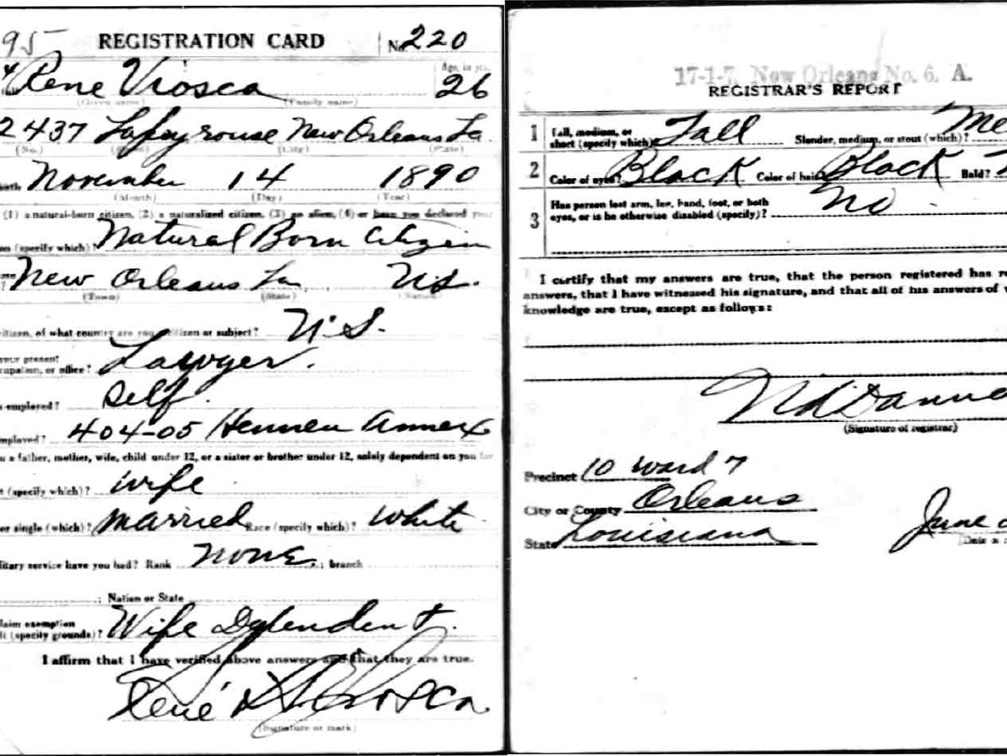 95 REGISTRATION CARD No. 220
Rene Viosca Age, in yrs. 26
(Given name) (Family name)
2437 New Orleans La.
(No.) (City) (State)
November 14 1890
(Month) (Day) (Year)
(1) a natural-born citizen, (2) a naturalized citizen, (3) an alien, (4) or have you declared your
(specify which)? Natural Born Citizen
New Orleans La U.S.
(Town) (State) (Nation)
citizen, of what country are you a citizen or subject? U.S.
present
occupation, or office? Lawyer.
employed? Self.
employed? 404-05 Hennen Annex
a father, mother, wife, child under 12, or a sister or brother under 12, solely dependent on you for
(specify which)? wife
or single (which)? Married Race (specify which)? White
military service have you had? Rank None ; branch
; Nation or State
claim exemption
(specify grounds)? Wife Dependent.
I affirm that I have verified above answers and that they are true.
René Viosca
(Signature or mark)
17-1-7. New Orleans No. 6. A.
REGISTRAR'S REPORT
1 Tall, medium, or
short (specify which)? Tall Slender, medium, or stout (which)? Me
2 Color of eyes? Black Color of hair? Black Bald?
3 Has person lost arm, leg, hand, foot, or both
eyes, or is he otherwise disabled (specify)? No.
I certify that my answers are true, that the person registered has
answers, that I have witnessed his signature, and that all of his answers of
knowledge are true, except as follows:
(Signature of registrar)
Precinct 10 Ward 7
City or County Orleans
State Louisiana June